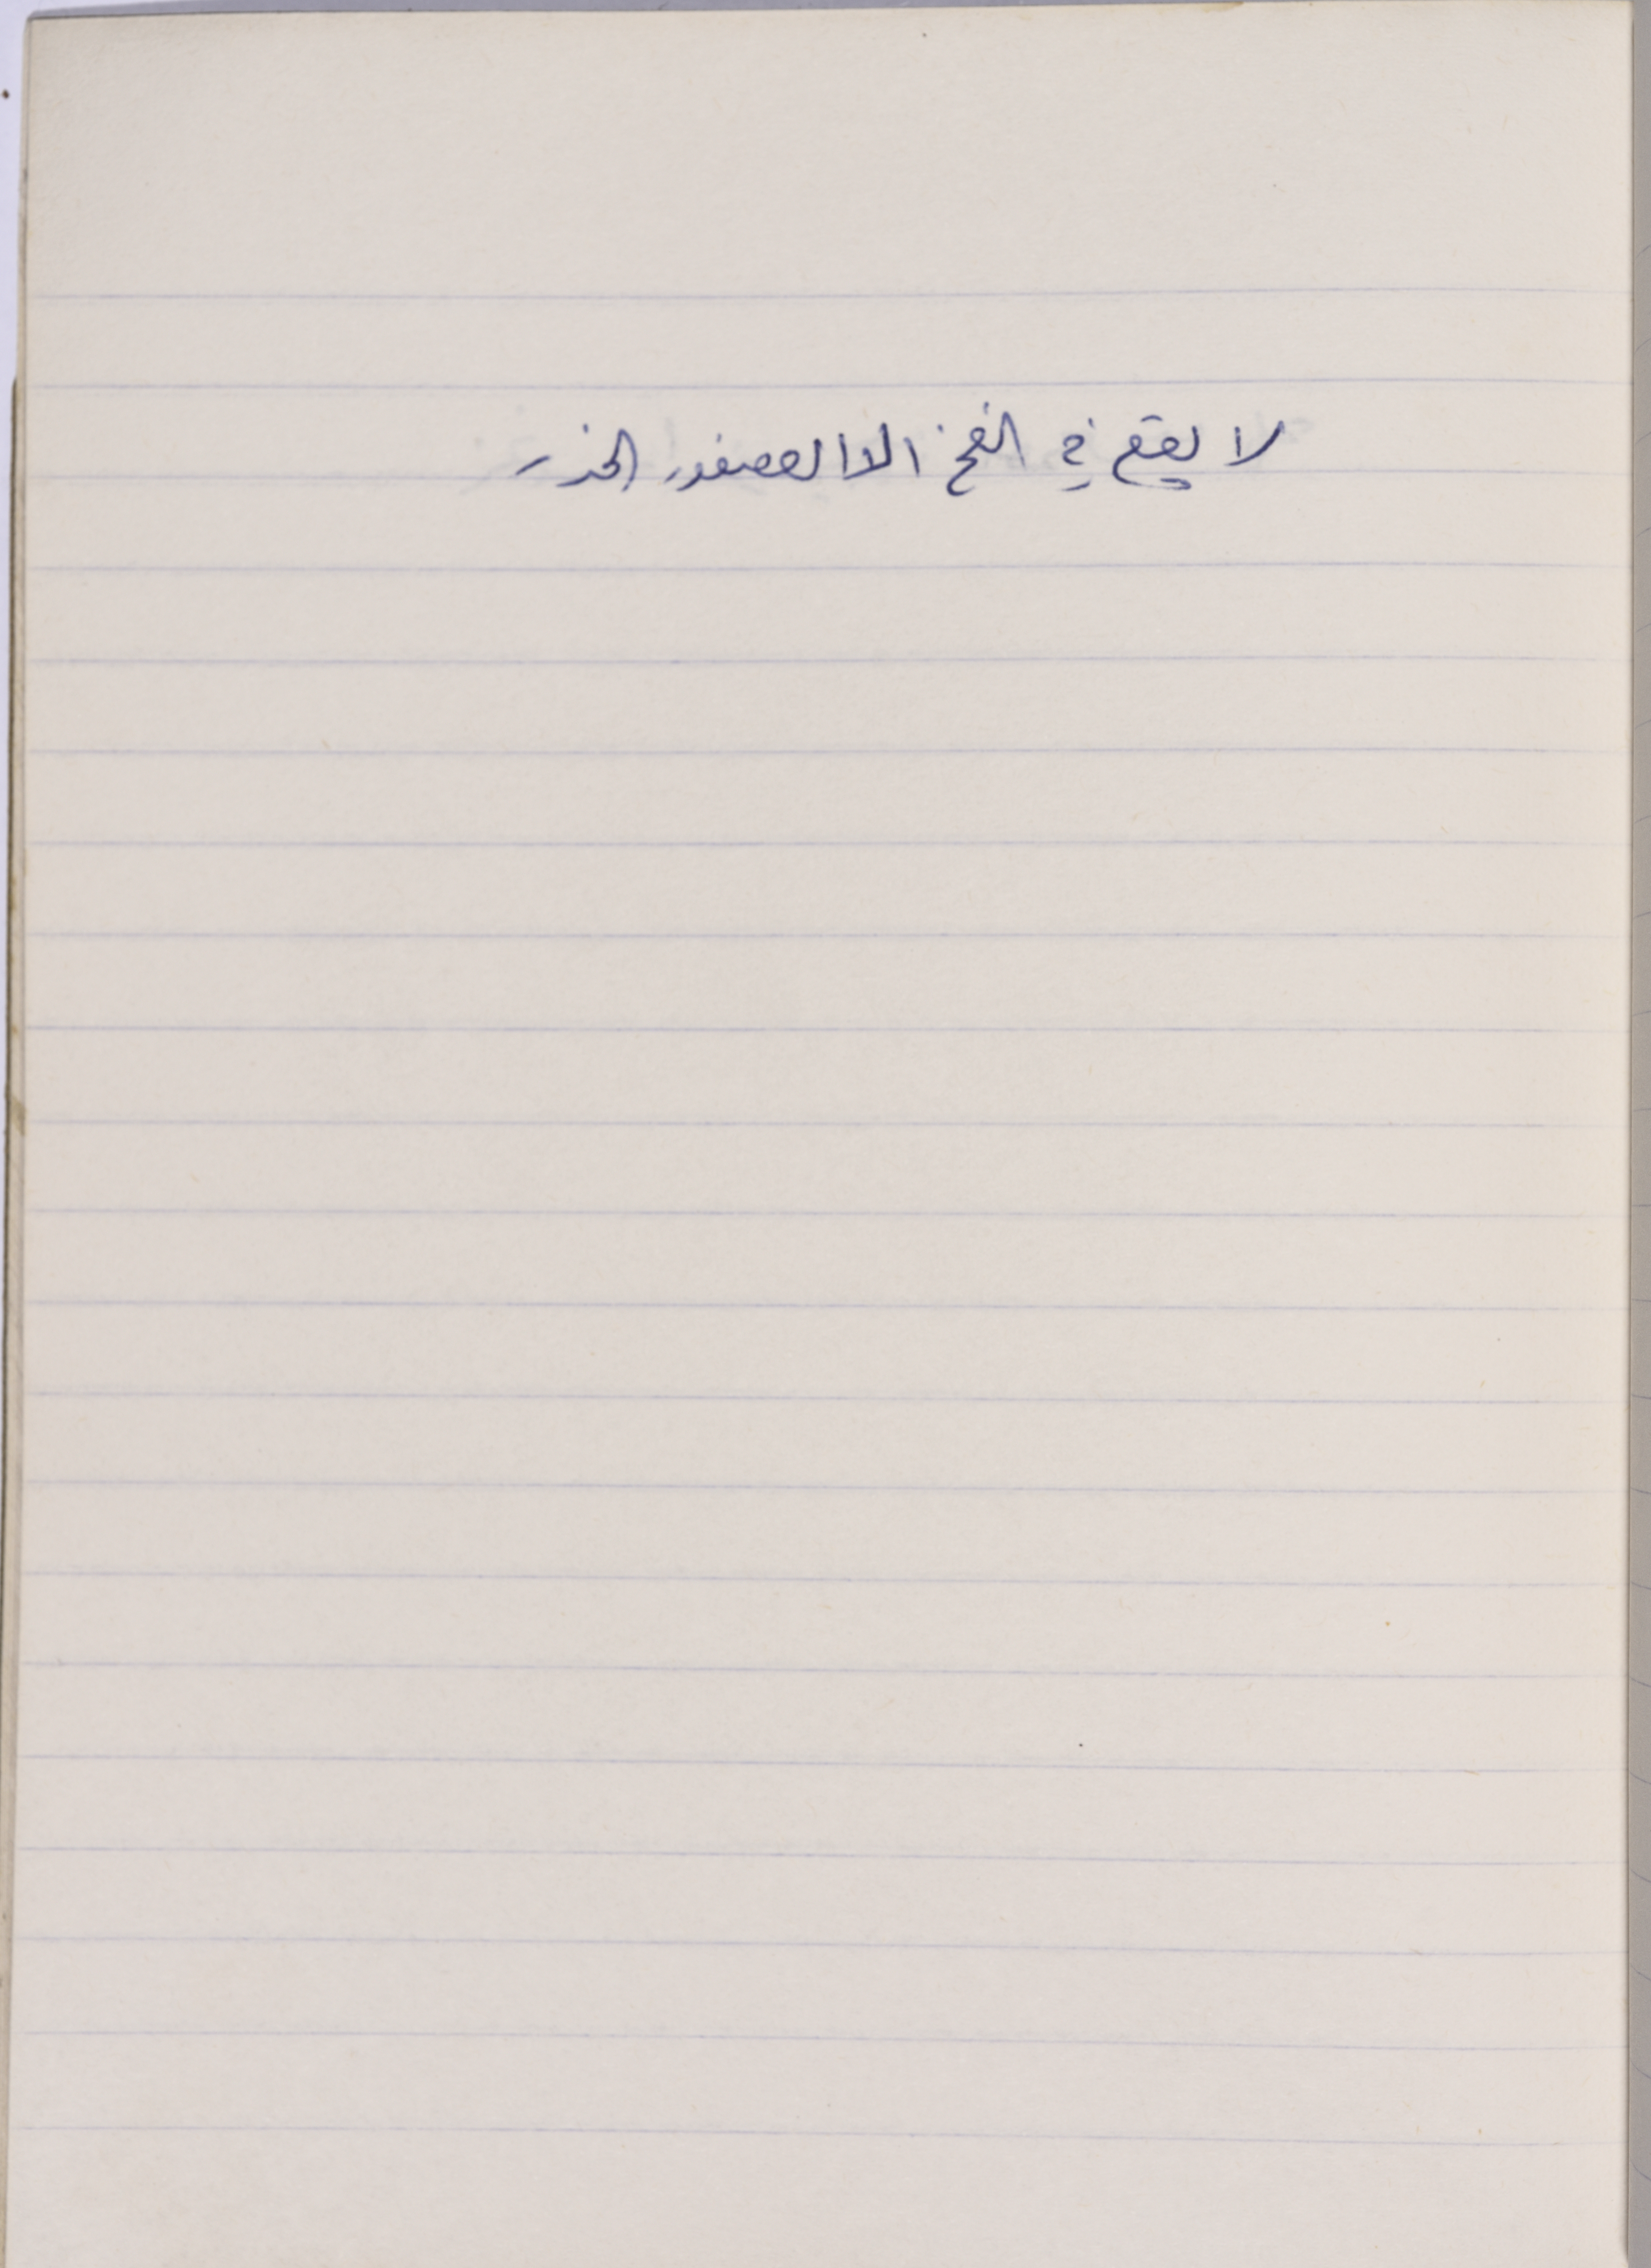 لا يقع في الفخ الا العصفور الحذر